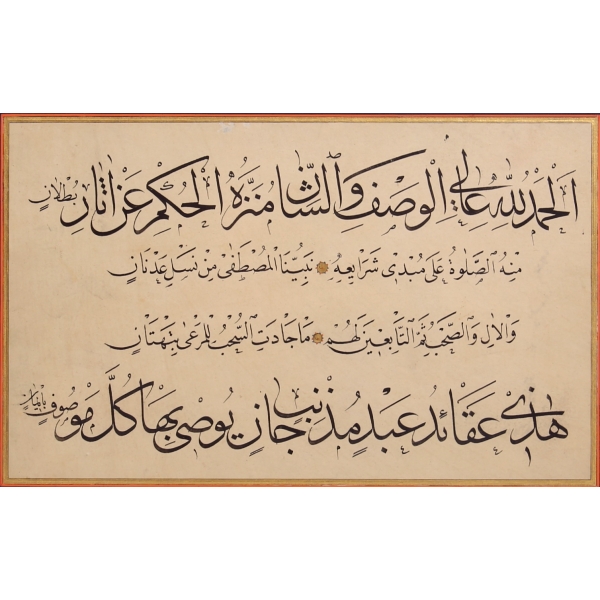 الْحَمْدُ لِلّٰهِ عَالِي الْوَصْفِ وَالشَّانِ مُنَزَّهُ الْحُكْمِ عَنْ اٰثَارِ بُطْلَانِ
مِنْهُ الصَّلٰوةُ عَلٰى مُبْدِي شَرَايِعِهِ نَبِيِّنَا الْمُصْطَفٰى مِنْ نَسْلِ عَدْنَانِ
وَالْاٰلِ وَالصَّحْبِ ثُمَّ التَّابِعِينَ لَهُمْ مَا جَادَتِ السُّحْبُ لِلْمَرْعٰى بِتَهْتَانِ
هٰذِي عَقَائِدُ عَبْدٍ مُذْنِبٍ جَانٍ يُوصِي بِهَا كُلَّ مَوْصُوفٍ بِاِيْمَانِ